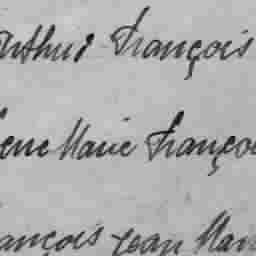 Arthur François
ène Marie Franço
ançois Jean Mari